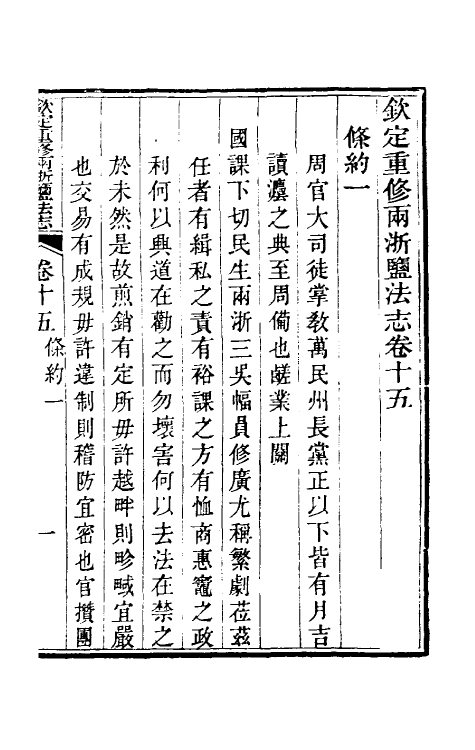 欽定重修兩浙鹽法志卷十五
條約一
周官大司徒掌敎萬民州長黨正以下皆有月吉
讀灋之典至周備也鹺業上關
國課下切民生兩浙三吳幅員修廣尤稱繁劇莅茲
任者有緝私之責有裕課之方有恤商惠竈之政
利何以興道在勸之而勿壞害何以去法在禁之
於未然是故煎銷有定所毋許越畔則畛域宜嚴
也交易有成規毋許違制則稽防宜密也官攢團
欽定重修兩浙鹽法志
卷十五
條約一
一